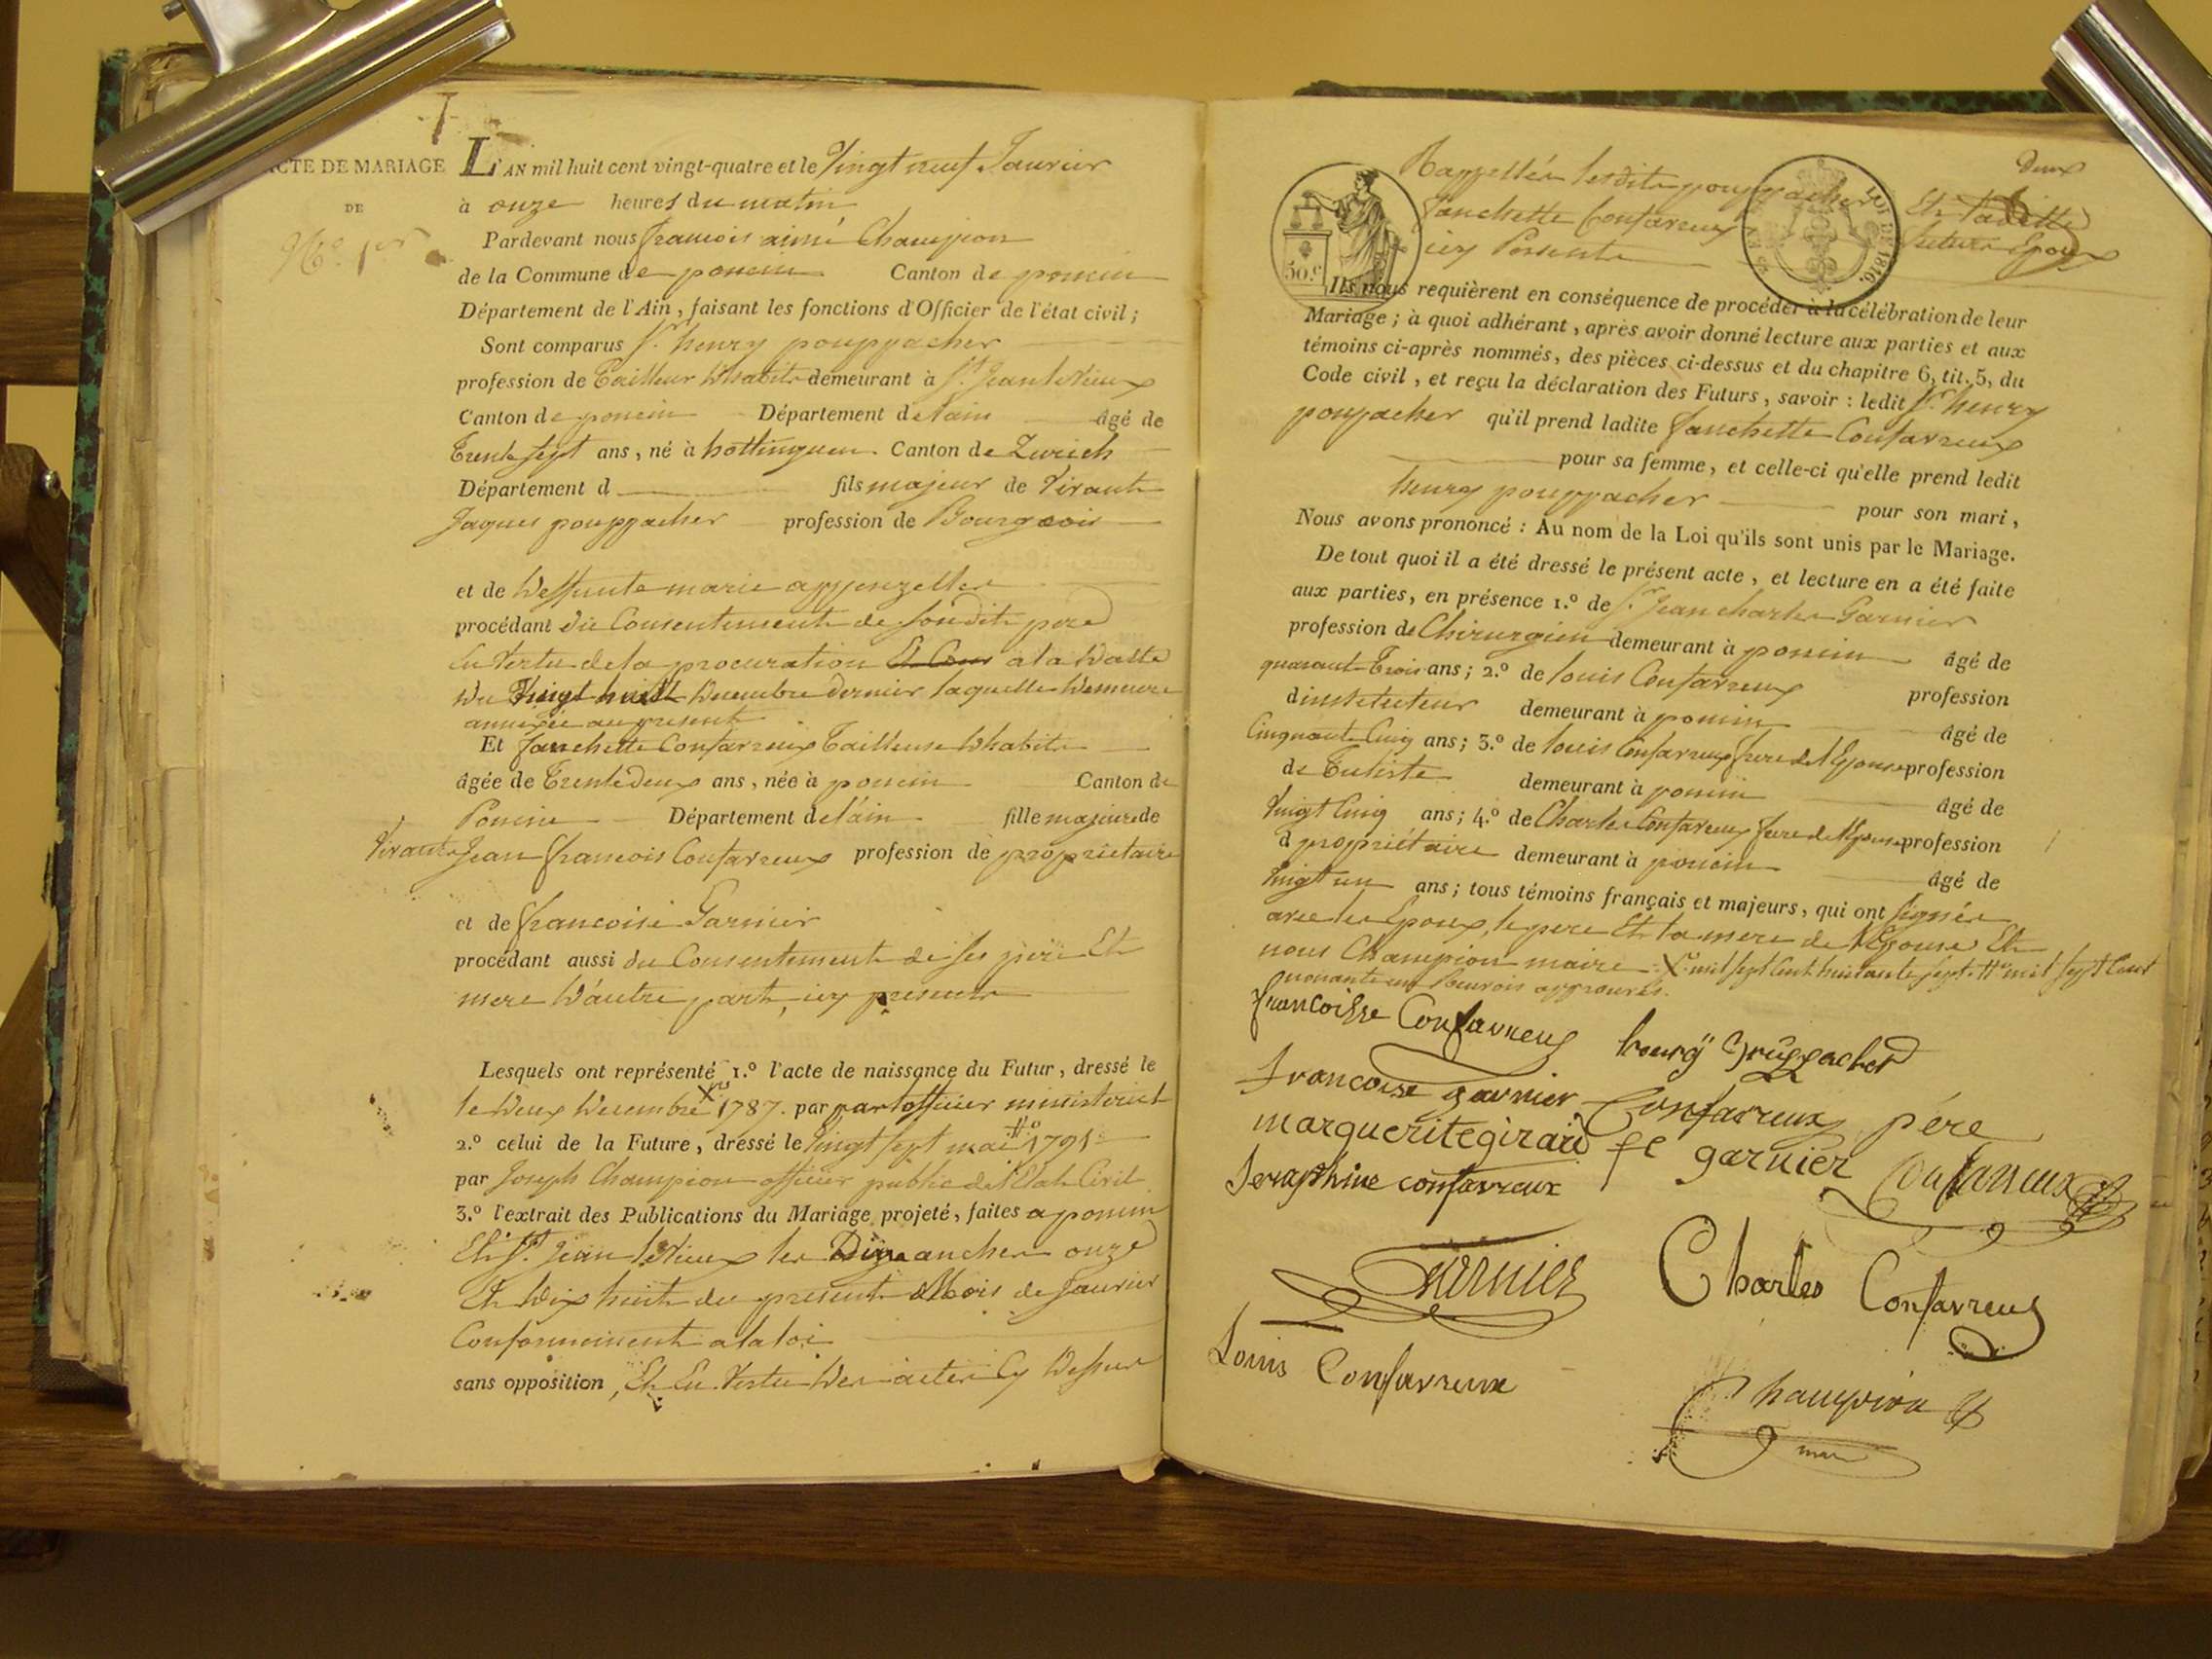 ACTE DE MARIAGE
DE
N.º 1er
L'AN mil huit cent vingt-quatre et le Vingt neuf Janvier
à onze heures du matin
Pardevant nous françois aimé Champion
de la Commune de poncin Canton de poncin
Département de l'Ain, faisant les fonctions d'Officier de l'état civil;
Sont comparus Sr. henry pouppacher
profession de Tailleur d'habits demeurant à St. Jean le Vieux
Canton de poncin Département de lain âgé de
Trente sept ans, né à hottinguen Canton de Zurich
Département d fils majeur de Vivant
Jaques pouppacher profession de Bourgeois
et de deffunte marie appenzeller
procédant du Consentement de son dit pere
En Vertu de la procuration a la datte
du Vingt huit decembre dernier laquelle demeure
annexée au present
Et fanchette Confavreux Tailleuse d'habits
âgée de Trente deux ans, née à poncin Canton de
Poncin Département de l'ain fille majeure de
Vivant Jean françois Confavreux profession de propriétaire
et de francoise Garnier
procédant aussi du Consentement de ses pere Et
mere d'autre part, icy presents
Lesquels ont représenté 1.º l'acte de naissance du Futur, dressé le
le deux decembre 1787. par par l'officier ministeriel
2.º celui de la Future, dressé le Vingt sept mai 1791
par Joseph Champion officier public de l'Etat Civil
3.º l'extrait des Publications du Mariage projeté, faites a poncin
Et St. Jean le Vieux les Dimanches onze
Et dix huit du present Mois de Janvier
Conformement a la loi
sans opposition, Et En Vertu des actes Cy dessus
deux
Rappellés lesdits pouppacher Et Laditte
fanchette Confavreux future Epoux
icy Presents
50.c
LOI DE 1816.
Ils nous requièrent en conséquence de procéder à la célébration de leur
Mariage; à quoi adhérant, après avoir donné lecture aux parties et aux
témoins ci-après nommés, des pièces ci-dessus et du chapitre 6, tit. 5, du
Code civil, et reçu la déclaration des Futurs, savoir : ledit Sr. henry
poupacher qu'il prend ladite fanchette Confavreux
pour sa femme, et celle-ci qu'elle prend ledit
henry pouppacher pour son mari,
Nous avons prononcé : Au nom de la Loi qu'ils sont unis par le Mariage.
De tout quoi il a été dressé le présent acte, et lecture en a été faite
aux parties, en présence 1.º de Sr. Jean charles Garnier
profession de Chirurgien demeurant à poncin âgé de
quarante Trois ans; 2.º de louis Confavreux profession
d'instituteur demeurant à poncin âgé de
Cinquante Cinq ans; 3.º de louis Confavreux frere de l'Epouse profession
de Tuliste demeurant à poncin âgé de
Vingt Cinq ans; 4.º de Charles Confavreux frere de l'Epouse profession
d propriétaire demeurant à poncin âgé de
Vingt un ans; tous témoins français et majeurs, qui ont signés
avec les Epoux, le pere Et la mere de l'Epouse Et
nous Champion maire. X mil sept Cent huitante sept. # mil sept Cent
nonante un Renvois approuvés.
francoisse Confavreux
henrÿ
francoise garnier Confavreux père
margueritegiraud fe garnier Confavreux
Seraphine confavreux
Garnier
Charles Confavreux
Louis Confavreux
Champion